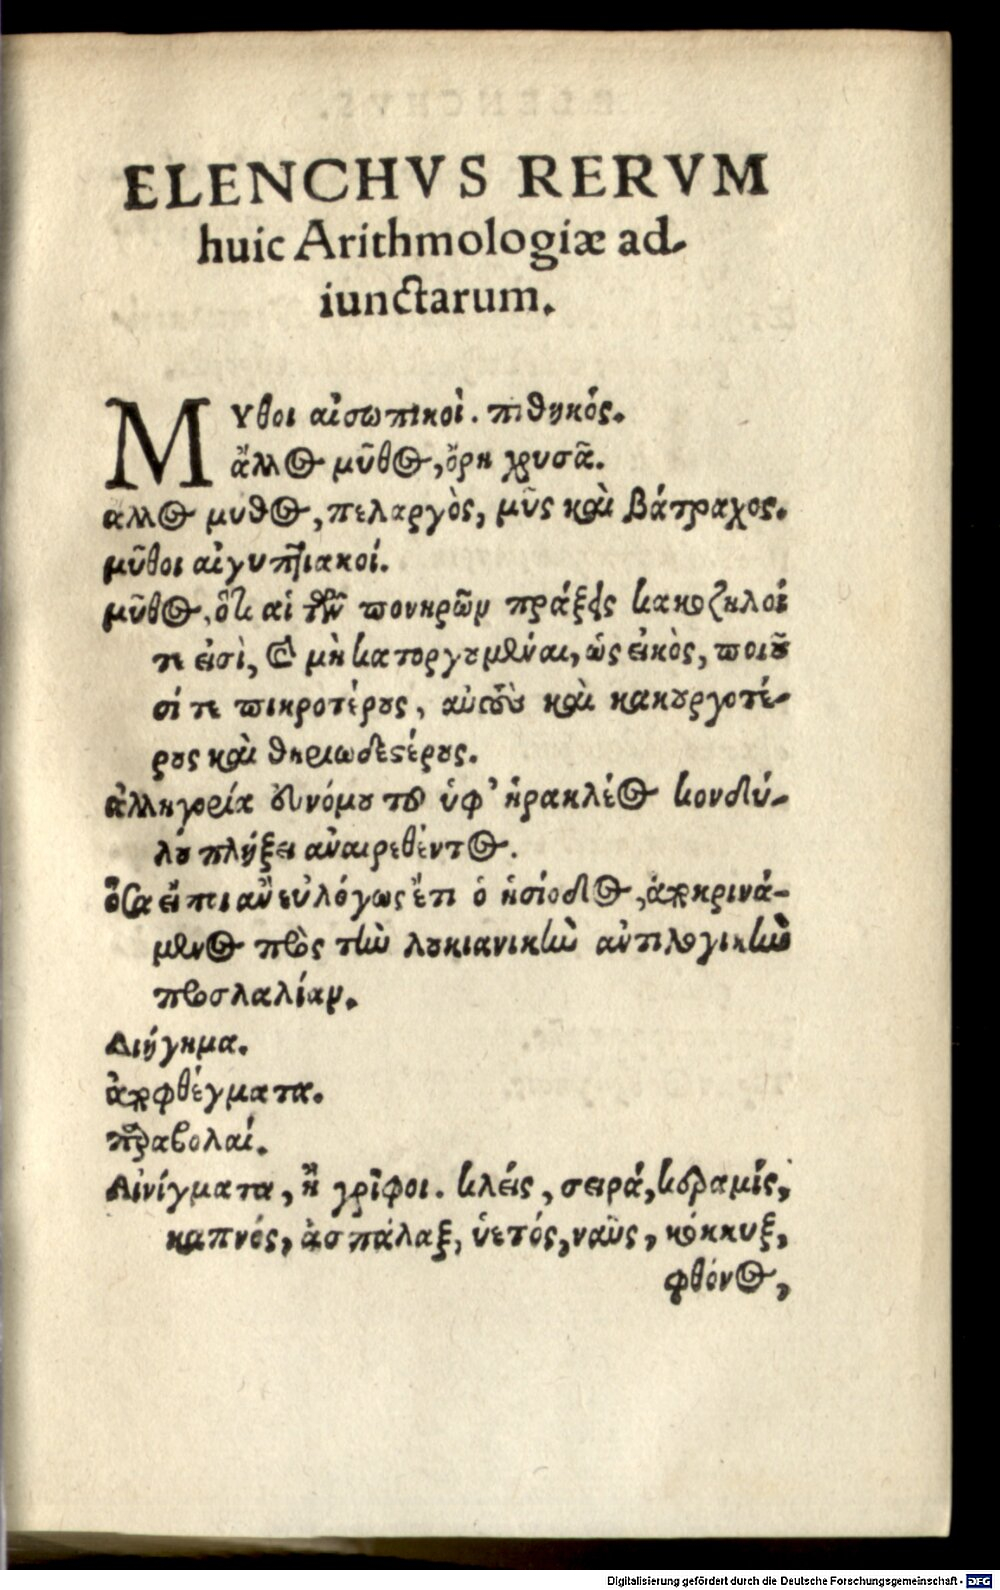 ELENCHVS RERVM
huic Arithmologiæ ad-
iunctarum.
Μῦθοι αἰσωπικοὶ. πιθηκός.
ἄλλος μῦθος, ὄρη χρυσᾶ.
αλλος μυθος, πελαργὸς, μῦς καὶ βάτραχος.
μῦθοι αἰγυπτιακοί.
μῦθος, ὅτι αἱ τῶν πονηρῶν πράξεις κακοζηλοί
τε εἰσὶ, καὶ μὴ κατοργουμέναι, ὡς εἰκὸς, ποιοῦ
σί τε πικροτέρους, αὐτοὺς καὶ κακουργοτέ-
ρους καὶ θηριωδεστέρους.
ἀλληγορία εὐνόμου τοῦ ὑφ' ἡρακλέος κονδύ-
λου πλήξει αναιρεθέντος.
ὅσα εἴποι ἂν εὐλόγως ἔτι ὁ ἡσίοδος, ἀποκρινά-
μενος πρὸς τὴν λουκιανικὴν ἀντιλογικὴν
προσλαλίαν.
Διήγημα.
ἀποφθέγματα.
παραβολαί.
Αἰνίγματα, ἢ γρῖφοι. κλείς, σειρά, κεραμίς,
καπνός, ἀσπάλαξ, ὑετός, ναῦς, κόκκυξ,
φθόνος,
Digitalisierung gefördert durch die Deutsche Forschungsgemeinschaft - DFG